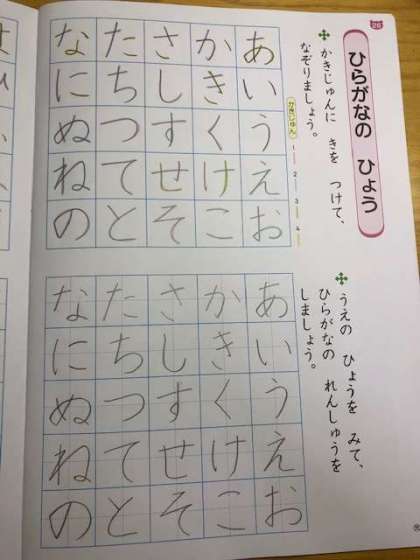 ひらがなの ひょう
かきじゅんに きを つけて、
なぞりましょう。
かきじゅん 1 2 3 4
あいうえお
かきくけこ
さしすせそ
たちつてと
なにぬねの
うえの ひょうを みて、
ひらがなの れんしゅうを
しましょう。
あいうえお
かきくけこ
さしすせそ
たちつてと
なにぬねの